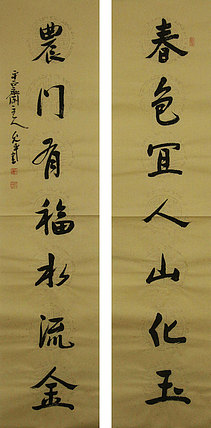 春色宜人山化玉
農門有福水流金